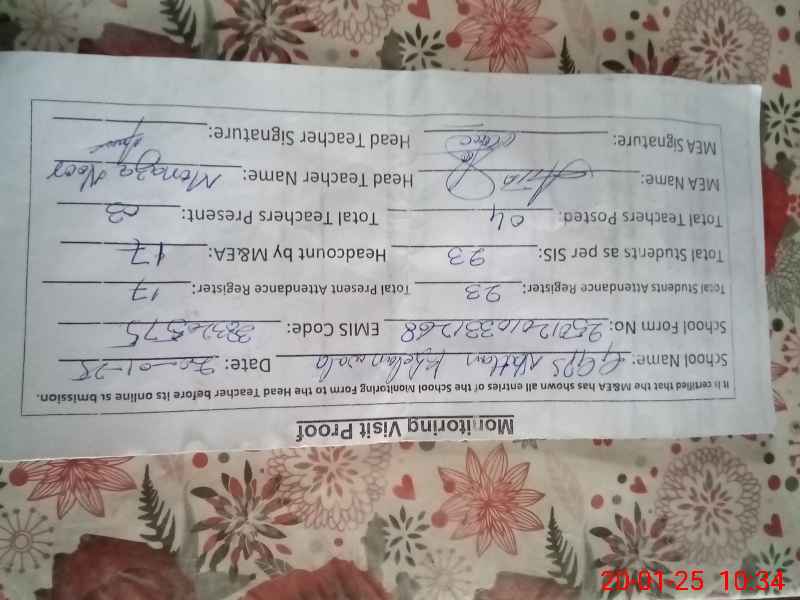 Monitoring Visit Proof
It is certified that the M&EA has shown all entries of the School Monitoring Form to the Head Teacher before its online submission.
School Name: GGPS Khelanwala Date: 20-01-25
School Form No: EMIS Code:
Total Students Attendance Register: 23 Total Present Attendance Register: 17
Total Students as per SIS: 23 Headcount by M&EA: 17
Total Teachers Posted: 04 Total Teachers Present: 03
MEA Name: Head Teacher Name: Noor
MEA Signature: Head Teacher Signature:
20-01-25 10:34